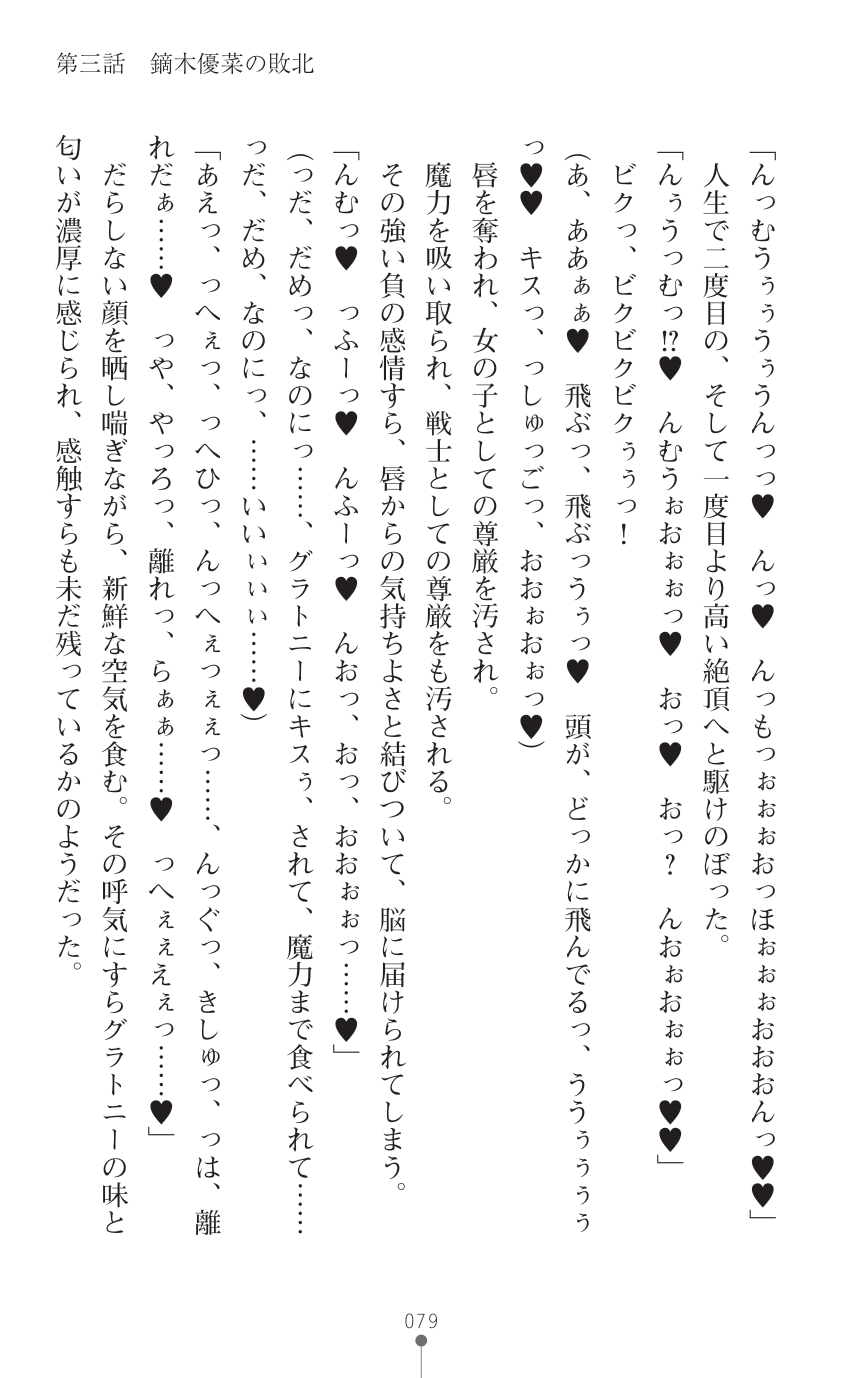 第三話　鏑木優菜の敗北
「んっむうぅぅうぅうんっっ♥　んっ♥　んっもっぉぉぉおっほぉぉぉおおおんっ♥♥」
人生で二度目の、そして一度目より高い絶頂へと駆けのぼった。
「んぅうっむっ!?♥　んむうぉおぉぉっ♥　おっ♥　おっ？　んおぉおぉぉっ♥♥」
ビクっ、ビクビクビクぅぅっ！
(あ、ああぁぁ♥　飛ぶっ、飛ぶっうぅっ♥　頭が、どっかに飛んでるっ、ううぅぅぅぅ
っ♥♥　キスっ、っしゅっごっ、おおぉおぉっ♥)
唇を奪われ、女の子としての尊厳を汚され。
魔力を吸い取られ、戦士としての尊厳をも汚される。
その強い負の感情すら、唇からの気持ちよさと結びついて、脳に届けられてしまう。
「んむっ♥　っふーっ♥　んふーっ♥　んおっ、おっ、おおぉぉっ……♥」
(っだ、だめっ、なのにっ……、グラトニーにキスぅ、されて、魔力まで食べられて……
っだ、だめ、なのにっ、……いいぃぃぃ……♥)
「あえっ、っへぇっ、っへひっ、んっへぇっぇぇっ……、んっぐっ、きしゅっ、っは、離
れだぁ……♥　っや、やっろっ、離れっ、らぁぁ……♥　っへぇぇえぇっ……♥」
だらしない顔を晒し喘ぎながら、新鮮な空気を食む。その呼気にすらグラトニーの味と
匂いが濃厚に感じられ、感触すらも未だ残っているかのようだった。
079